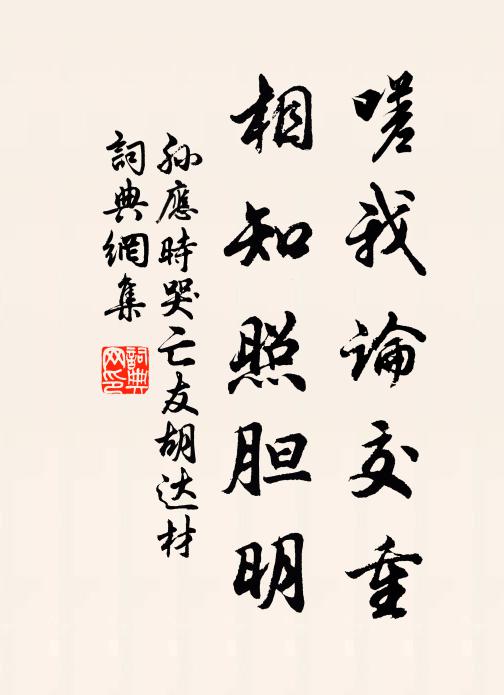 嗟我論交重
相知照胆明
孙應時哭亡友胡达材
詞典網集
詞典网印